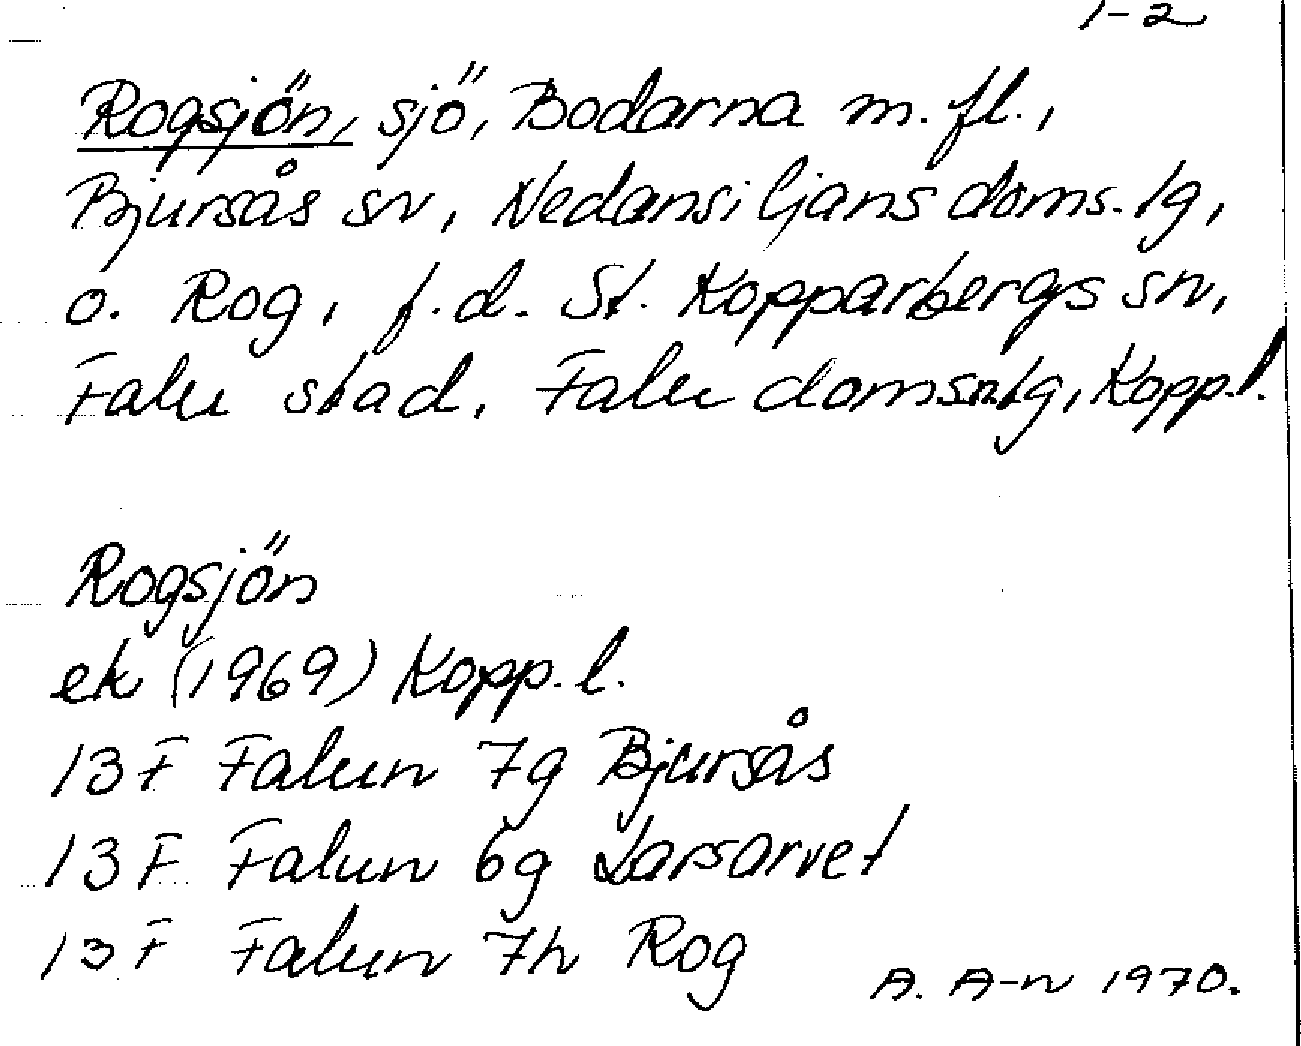 1-2
Rogsjön, sjö, Bodarna m.fl.,
Bjursås sn, Nedansiljans doms.tg,
o. Rog, f.d. St. Kopparbergs sn,
Falu stad, Falu domsatg, Kopp.l.
Rogsjön
ek (1969) Kopp.l.
13F Falun 7g Bjursås
13F Falun 6g Larsarvet
13F Falun 7h Rog
A. A-n 1970.